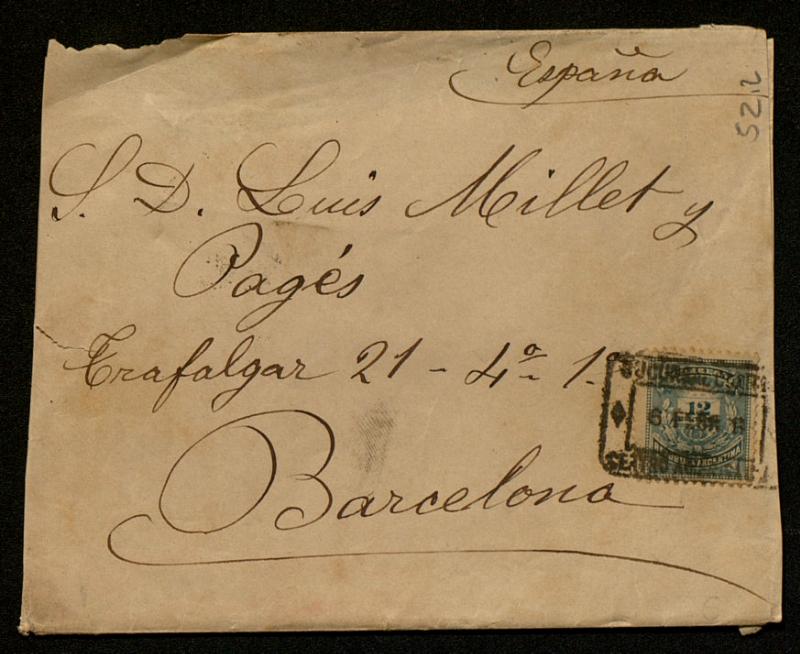 España
52,2
S. D. Luis Millet y
Pagés
Trafalgar 21 - 4º - 1.ª
Barcelona
SUCURSAL
12
6 FEBR
ARGENTINA